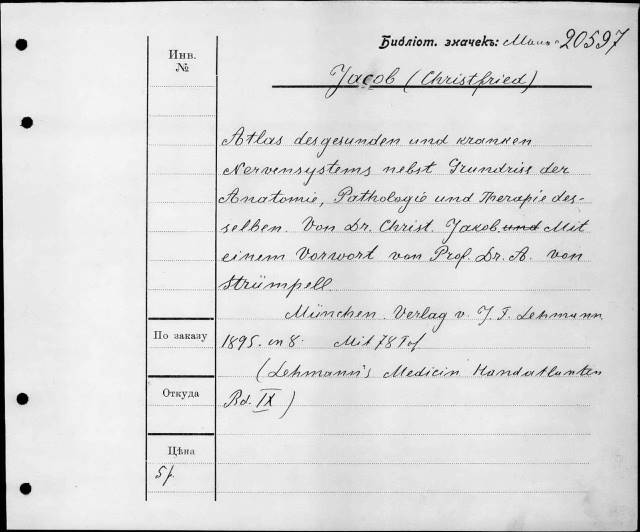 Библіот. значекъ: 20597
Инв.
№
Jacob (Christfried)
Atlas des gesunden und kranken
Nervensystems nebst Grundriss der
Anatomie, Pathologie und Therapie des-
selben. Von Dr. Christ. Jakob. und Mit
einem Vorwort von Prof. Dr. A. von
Strümpell
München. Verlag v. J. F. Lehmann
По заказу
1895. in 8. Mit 78 Taf
(Lehmann's Medicin Handatlanten
Откуда
Bd. IX)
Цѣна
5 р.